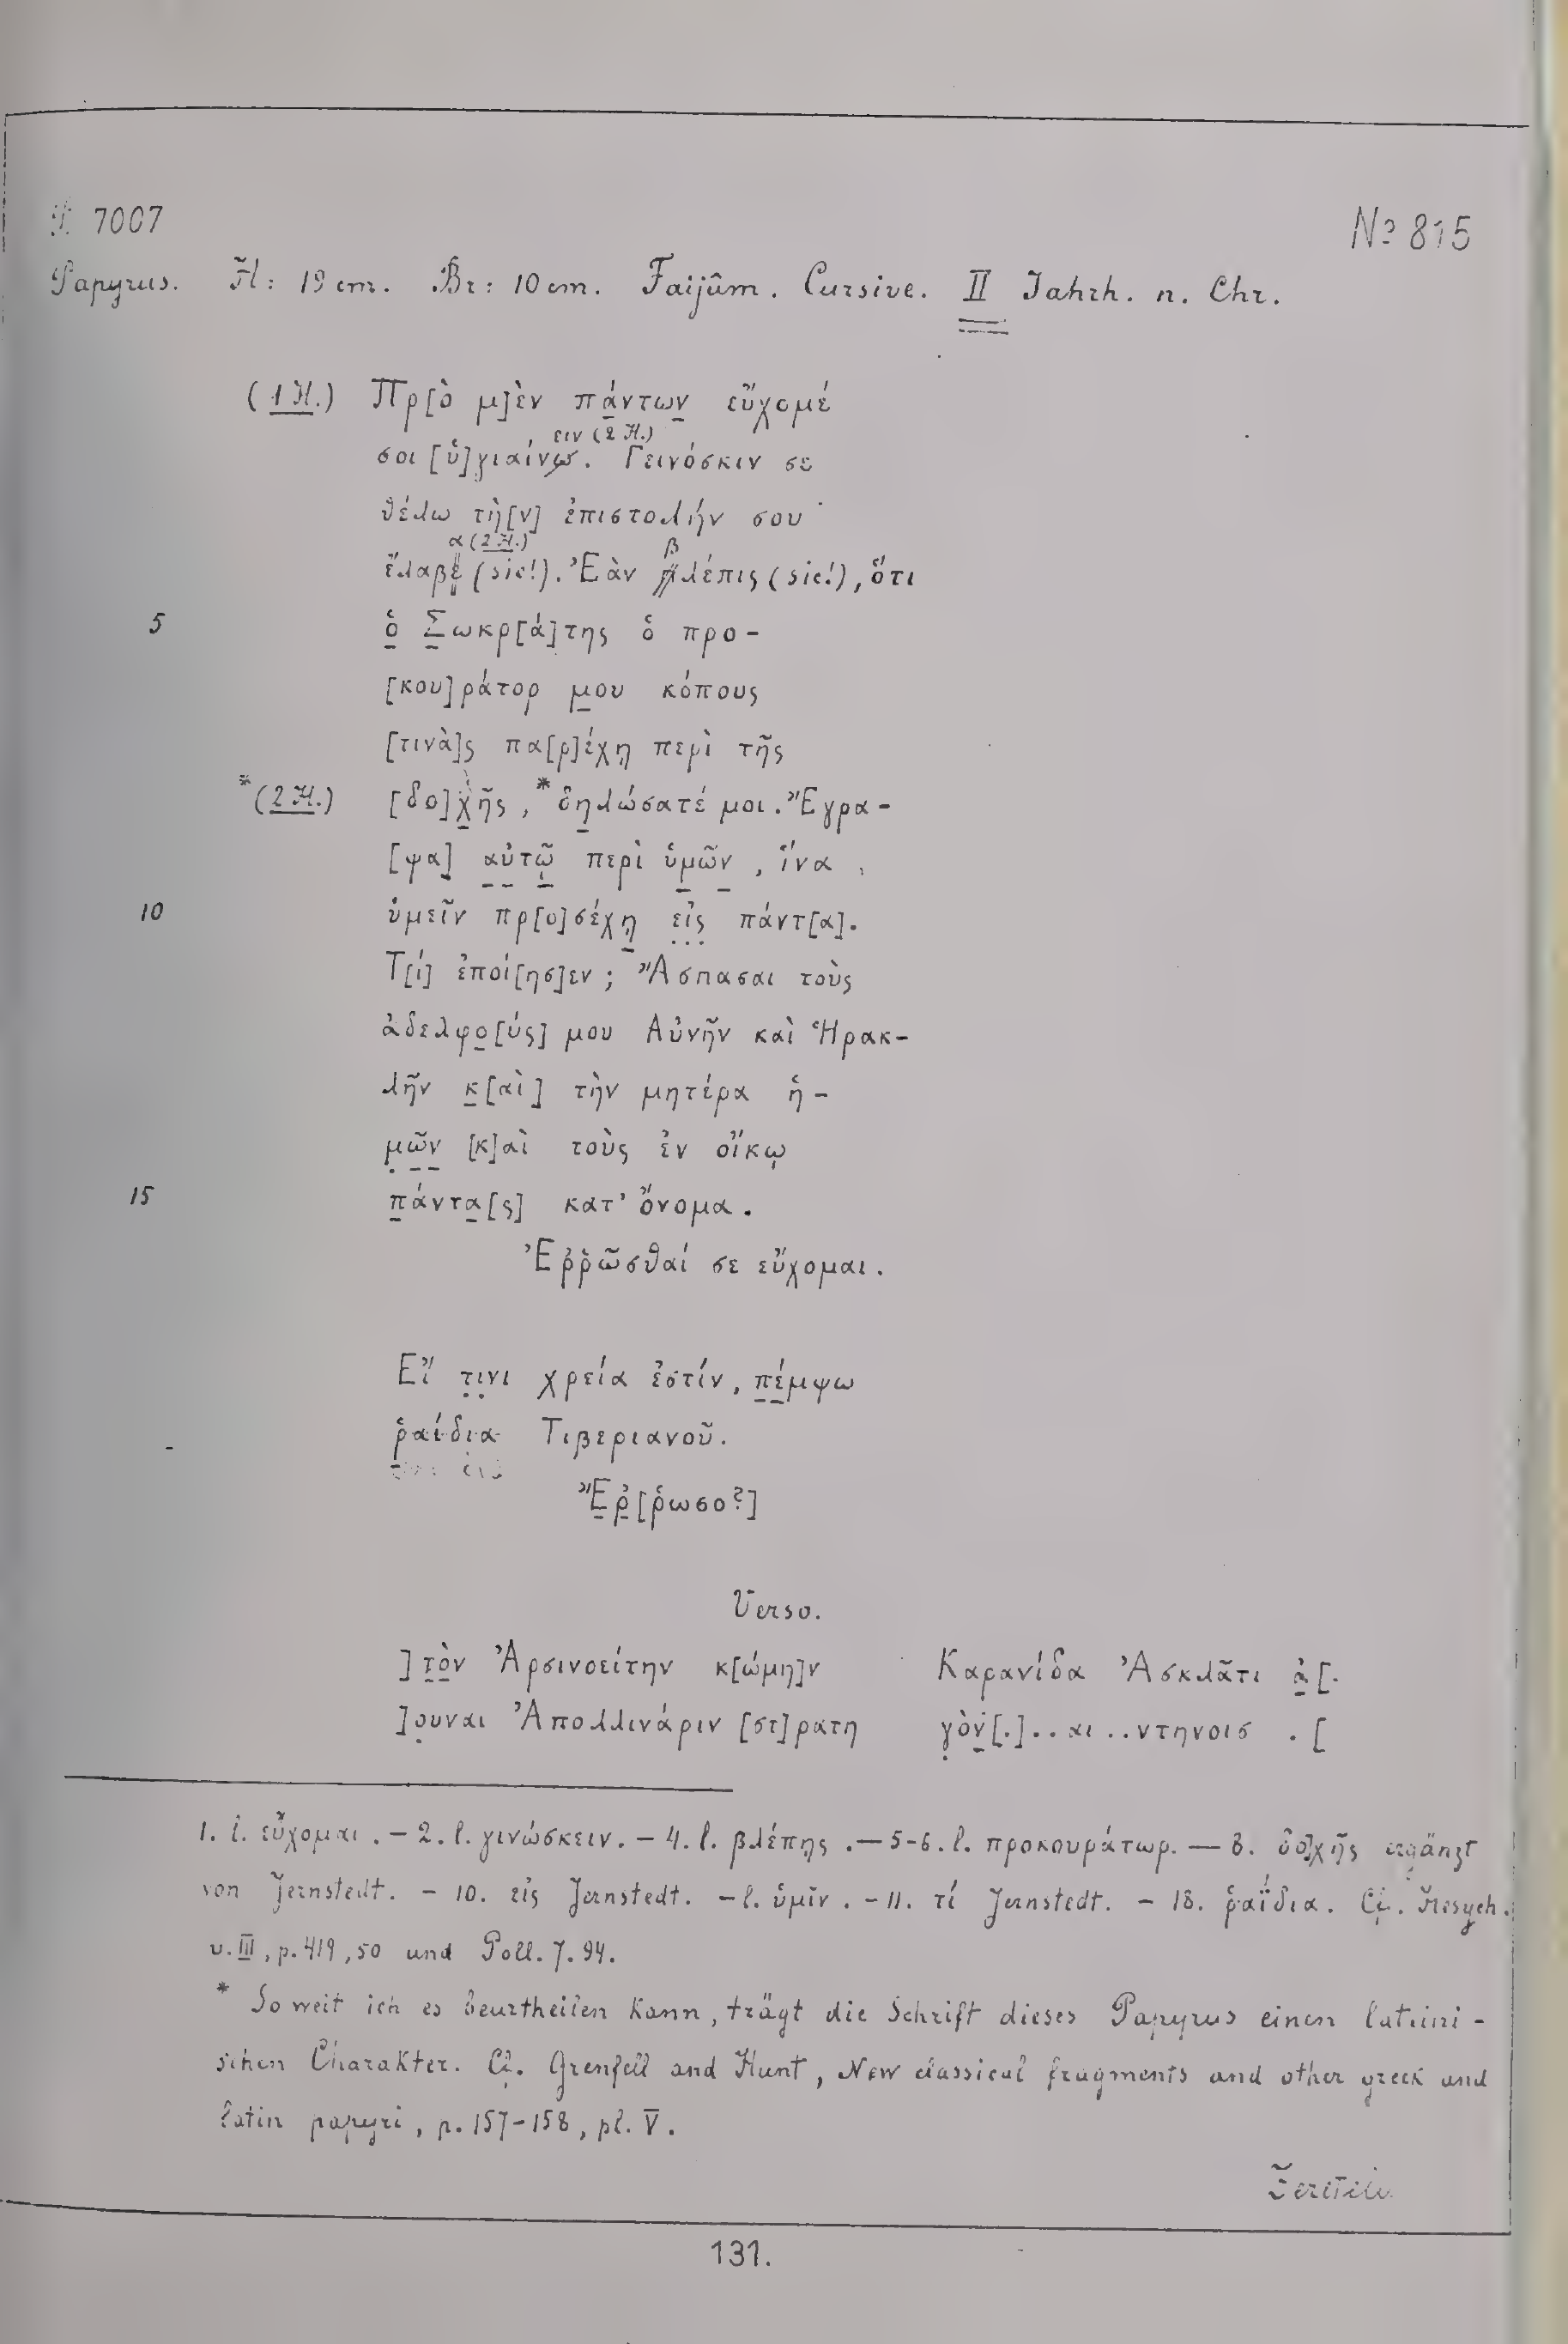 P. 7007
№ 815
Papyrus. H: 19 cm. Br: 10 cm. Faijûm. Cursive. II Jahrh. n. Chr.
(1 H.) Πρ[ὸ μ]ὲν πάντων εὔχομέ
ειν (2 H.)
σοι [ὑ]γιαίνω. Γεινόσκιν σε
θέλω τὴ[ν] ἐπιστολήν σου
α (2 H.) β
ἔλαβε (sic!). Ἐὰν πλέπις (sic!), ὅτι
5 ὁ Σωκρ[ά]της ὁ προ-
[κου]ράτορ μου κόπους
[τινὰ]ς πα[ρ]έχῃ περὶ τῆς
*(2 H.) [δο]χῆς, *δηλώσατέ μοι. Ἔγρα-
[ψα] αὐτῷ περὶ ὑμῶν, ἵνα
10 ὑμεῖν πρ[ο]σέχῃ εἰς πάντ[α].
Τ[ί] ἐποί[ησ]εν; Ἄσπασαι τοὺς
ἀδελφο[ύς] μου Αὐνῆν καὶ Ἡρακ-
λῆν κ[αὶ] τὴν μητέρα ἡ-
μῶν [κ]αὶ τοὺς ἐν οἴκῳ
15 πάντα[ς] κατ' ὄνομα.
Ἐῤῥῶσθαί σε εὔχομαι.
Εἴ τινι χρεία ἐστίν, πέμψω
ῥαίδια Τιβεριανοῦ.
Ἔῤ[ῥωσο?]
Verso.
] τὸν Ἀρσινοείτην κ[ώμη]ν Καρανίδα Ἀσκλᾶτι ἀ[.
]ουναι Ἀπολλινάριν [στ]ρατη γὸν[.]..αι ..ντηνοισ .[
1. l. εὔχομαι. – 2. l. γινώσκειν. – 4. l. βλέπῃς. – 5-6. l. προκουράτωρ. – 8. δο]χῆς ergänzt
von Jernstedt. – 10. εἰς Jernstedt. – l. ὑμῖν. – 11. τί Jernstedt. – 18. ῥαΐδια. Cf. Hesych.
v. III, p. 419, 50 und Poll. 7. 94.
* So weit ich es beurtheilen kann, trägt die Schrift dieses Papyrus einen lateini-
schen Charakter. Cf. Grenfell and Hunt, New classical fragments and other greek and
latin papyri, p. 157-158, pl. V.
Zereteli.
131.